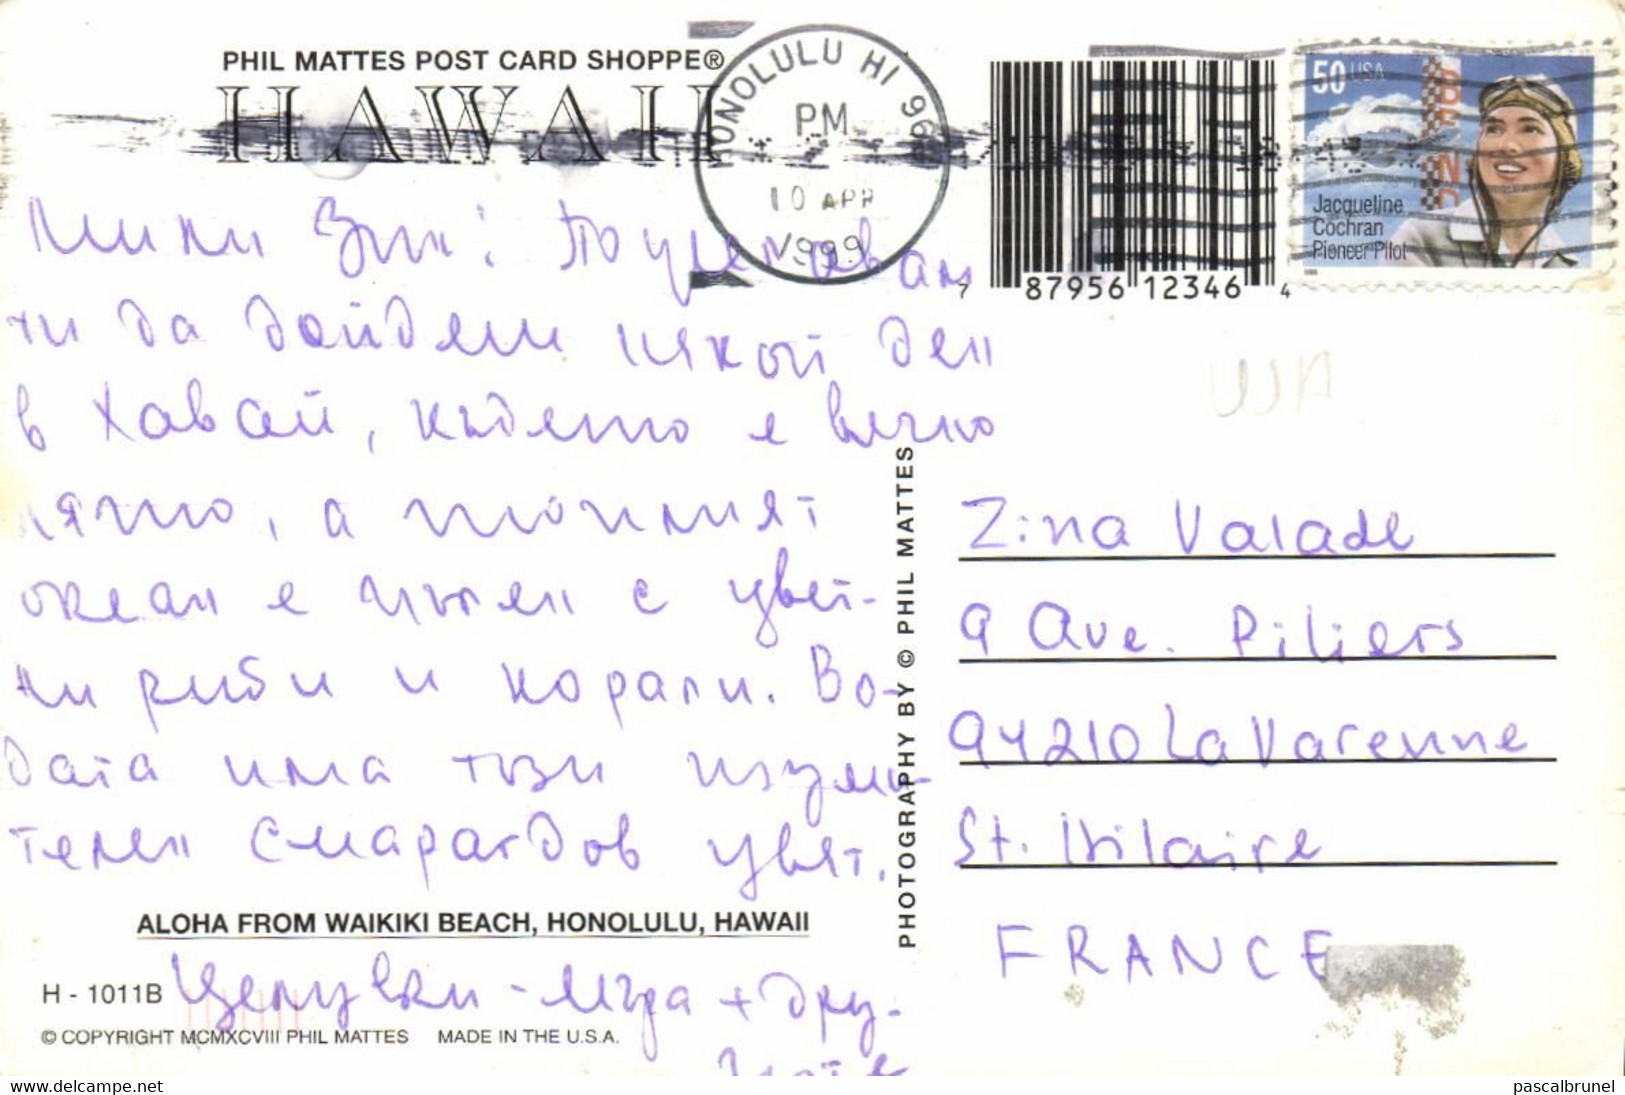 PHIL MATTES POST CARD SHOPPE®
HAWAII
HONOLULU HI 96
PM
10 APR
1999
50 USA
BEND
Jacqueline
Cochran
Pioneer Pilot
7 87956 12346 4
Мили Зин! Пожелавам
ти да дойдеш някой ден
в Хавай, където е вечно
лято, а топлият
океан е пълен с цвет-
ни риби и корали. Во-
дата има този изуми-
телен смарагдов цвят.
ALOHA FROM WAIKIKI BEACH, HONOLULU, HAWAII
Целувки - + дру-
H - 1011B
© COPYRIGHT MCMXCVIII PHIL MATTES MADE IN THE U.S.A.
PHOTOGRAPHY BY © PHIL MATTES
Zina Valade
9 Ave. Piliers
94210 La Varenne
St. Hilaire
FRANCE
www.delcampe.net
pascalbrunel